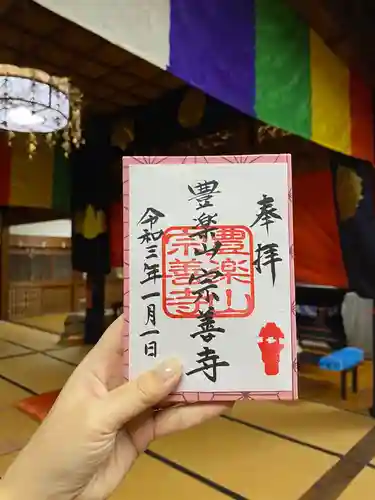 奉拝
豊楽山宗善寺
令和三年一月一日
豊楽山
宗善寺